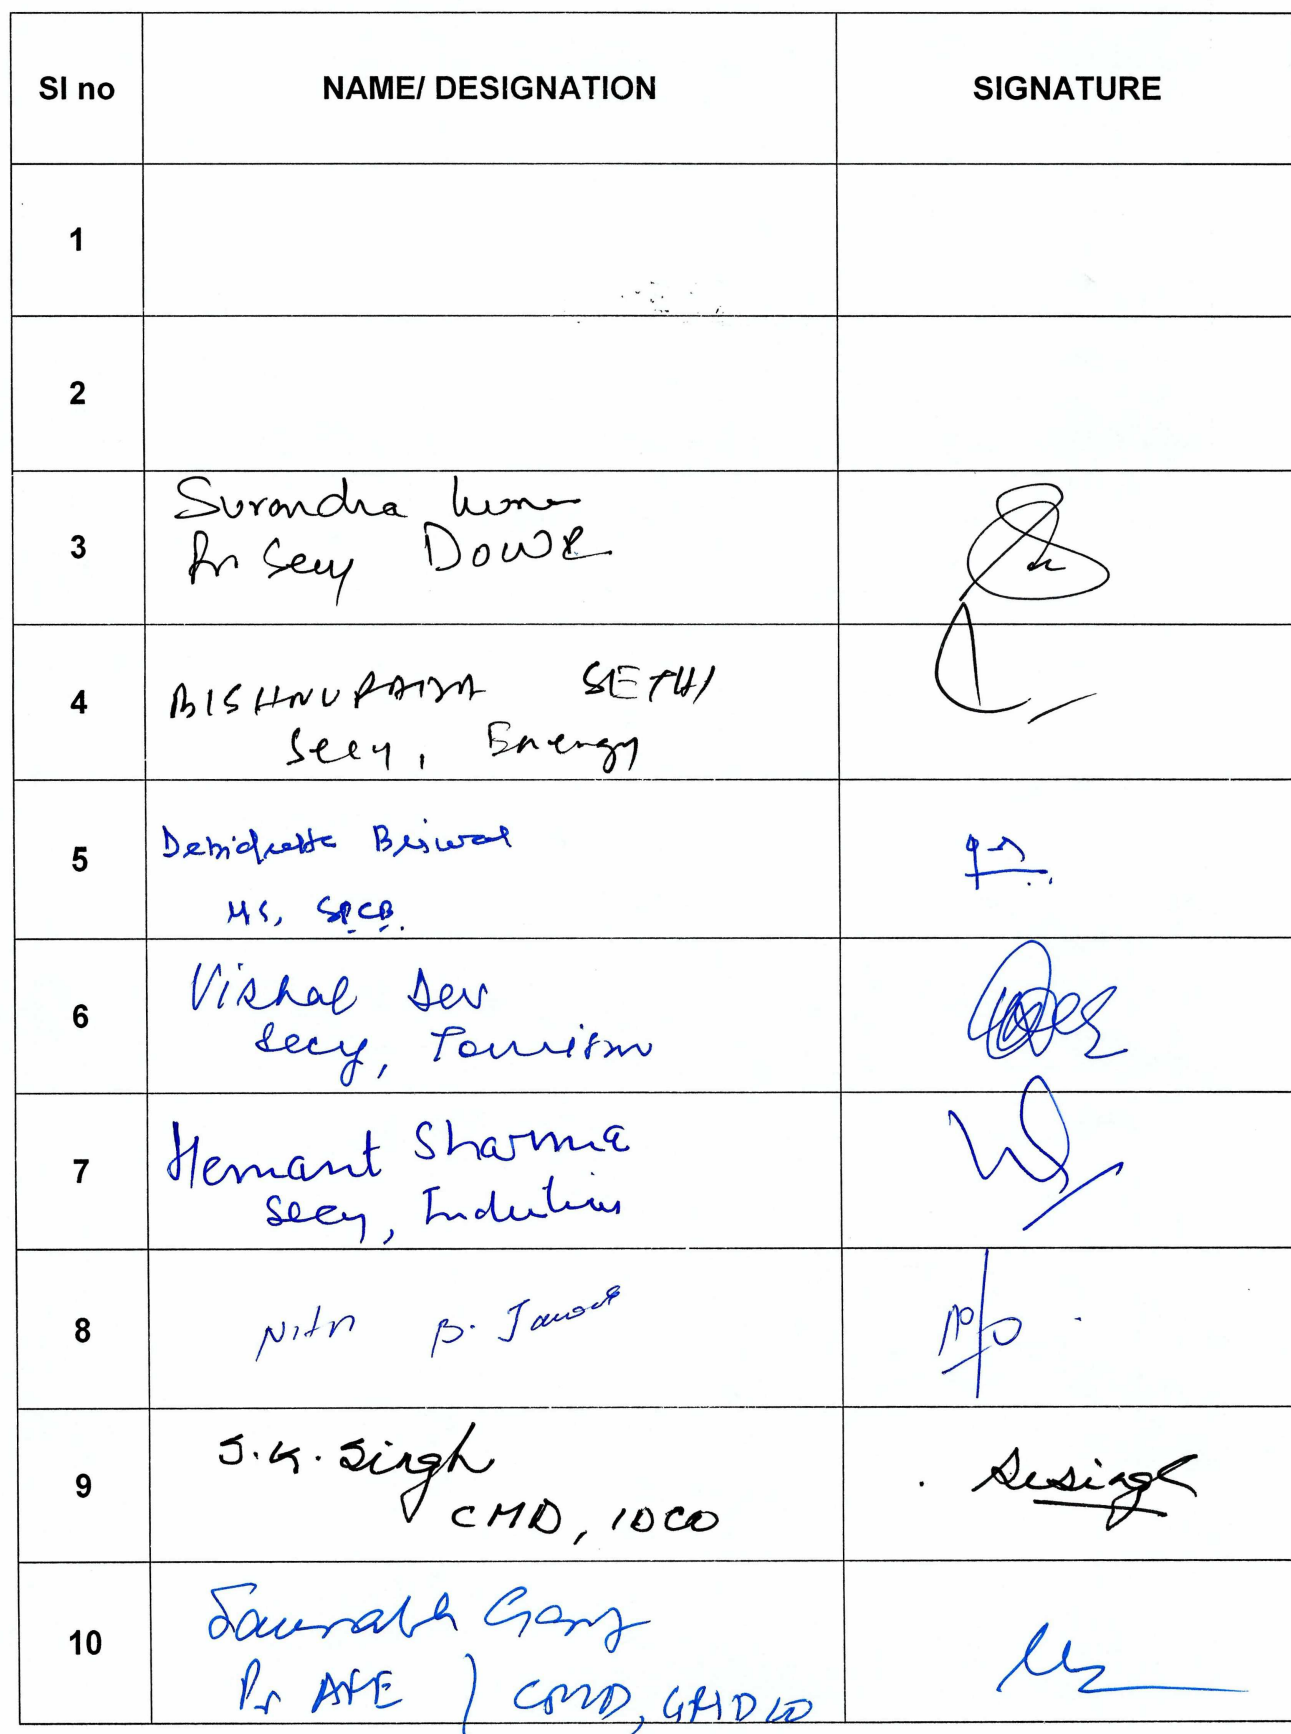 Sl no NAME/ DESIGNATION SIGNATURE
1
2
3 Surendra Kumar
Pr Secy DOWR
4 BISHNUPADA SETHI
Secy, Energy
5 Debidutta Biswal
MS, SPCB.
6 Vishal Dev
Secy, Tourism
7 Hemant Sharma
Secy, Industries
8 Nitin B. Jawale
9 S.K. Singh SKSingh
CMD, IDCO
10 Saurabh Garg
Pr AFE / CMD, GRIDCO